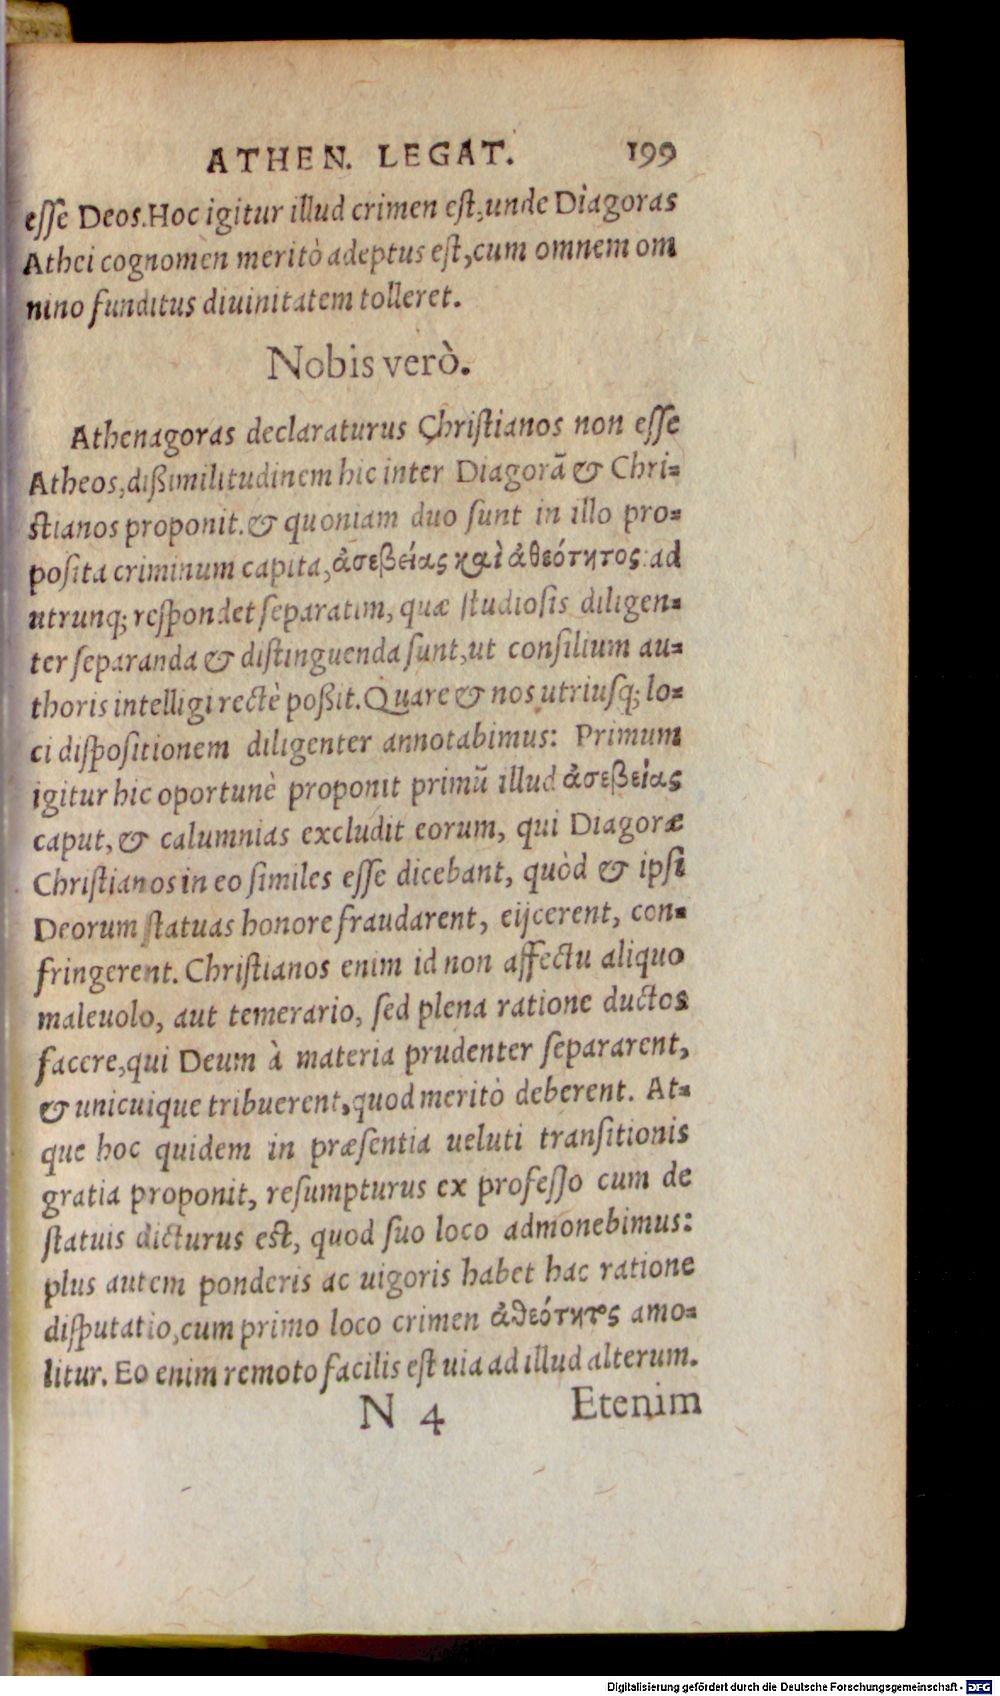 ATHEN. LEGAT. 199
esse Deos. Hoc igitur illud crimen est, unde Diagoras
Athei cognomen meritò adeptus est, cum omnem om
nino funditus diuinitatem tolleret.
Nobis verò.
Athenagoras declaraturus Christianos non esse
Atheos, dißimilitudinem hic inter Diagorã & Chri-
stianos proponit. & quoniam duo sunt in illo pro-
posita criminum capita, ἀσεβείας καὶ ἀθεότητος: ad
utrunq; respondet separatim, quæ studiosis diligen-
ter separanda & distinguenda sunt, ut consilium au-
thoris intelligi rectè poßit. Quare & nos utriusq; lo-
ci dispositionem diligenter annotabimus: Primum
igitur hic oportunè proponit primũ illud ἀσεβείας
caput, & calumnias excludit eorum, qui Diagoræ
Christianos in eo similes esse dicebant, quòd & ipsi
Deorum statuas honore fraudarent, eijcerent, con-
fringerent. Christianos enim id non affectu aliquo
maleuolo, aut temerario, sed plena ratione ductos
facere, qui Deum à materia prudenter separarent,
& unicuique tribuerent, quod meritò deberent. At-
que hoc quidem in præsentia ueluti transitionis
gratia proponit, resumpturus ex professo cum de
statuis dicturus est, quod suo loco admonebimus:
plus autem ponderis ac uigoris habet hac ratione
disputatio, cum primo loco crimen ἀθεότητος amo-
litur. Eo enim remoto facilis est uia ad illud alterum.
N 4 Etenim
Digitalisierung gefördert durch die Deutsche Forschungsgemeinschaft - DFG